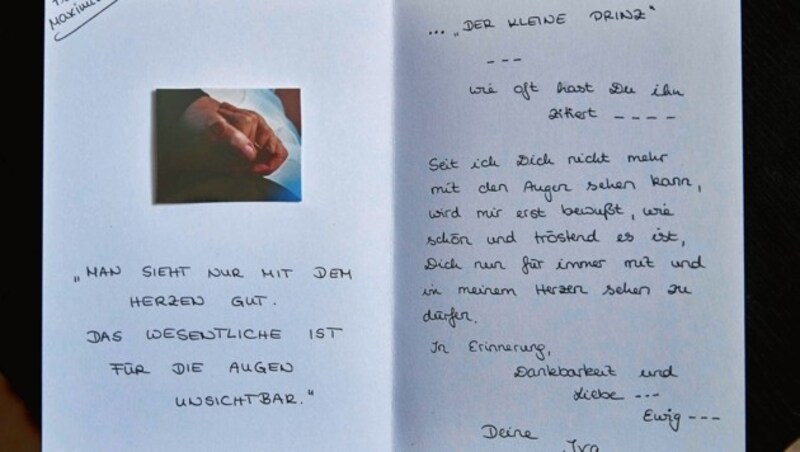 „MAN SIEHT NUR MIT DEM
HERZEN GUT.
DAS WESENTLICHE IST
FÜR DIE AUGEN
UNSICHTBAR."
... „DER KLEINE PRINZ"
---
wie oft hast Du ihn
zitiert ----
Seit ich Dich nicht mehr
mit den Augen sehen kann,
wird mir erst bewußt, wie
schön und tröstend es ist,
Dich nun für immer mit und
in meinem Herzen sehen zu
dürfen.
In Erinnerung,
Dankbarkeit und
Liebe ---
Ewig ---
Deine